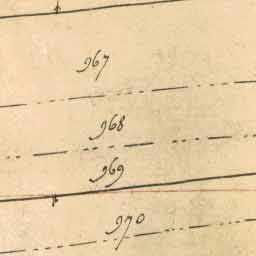 967
968
969
970